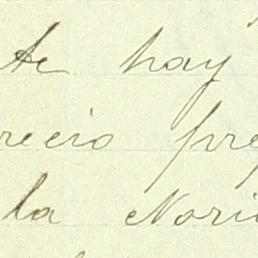 te hay
recio pre
la Nori